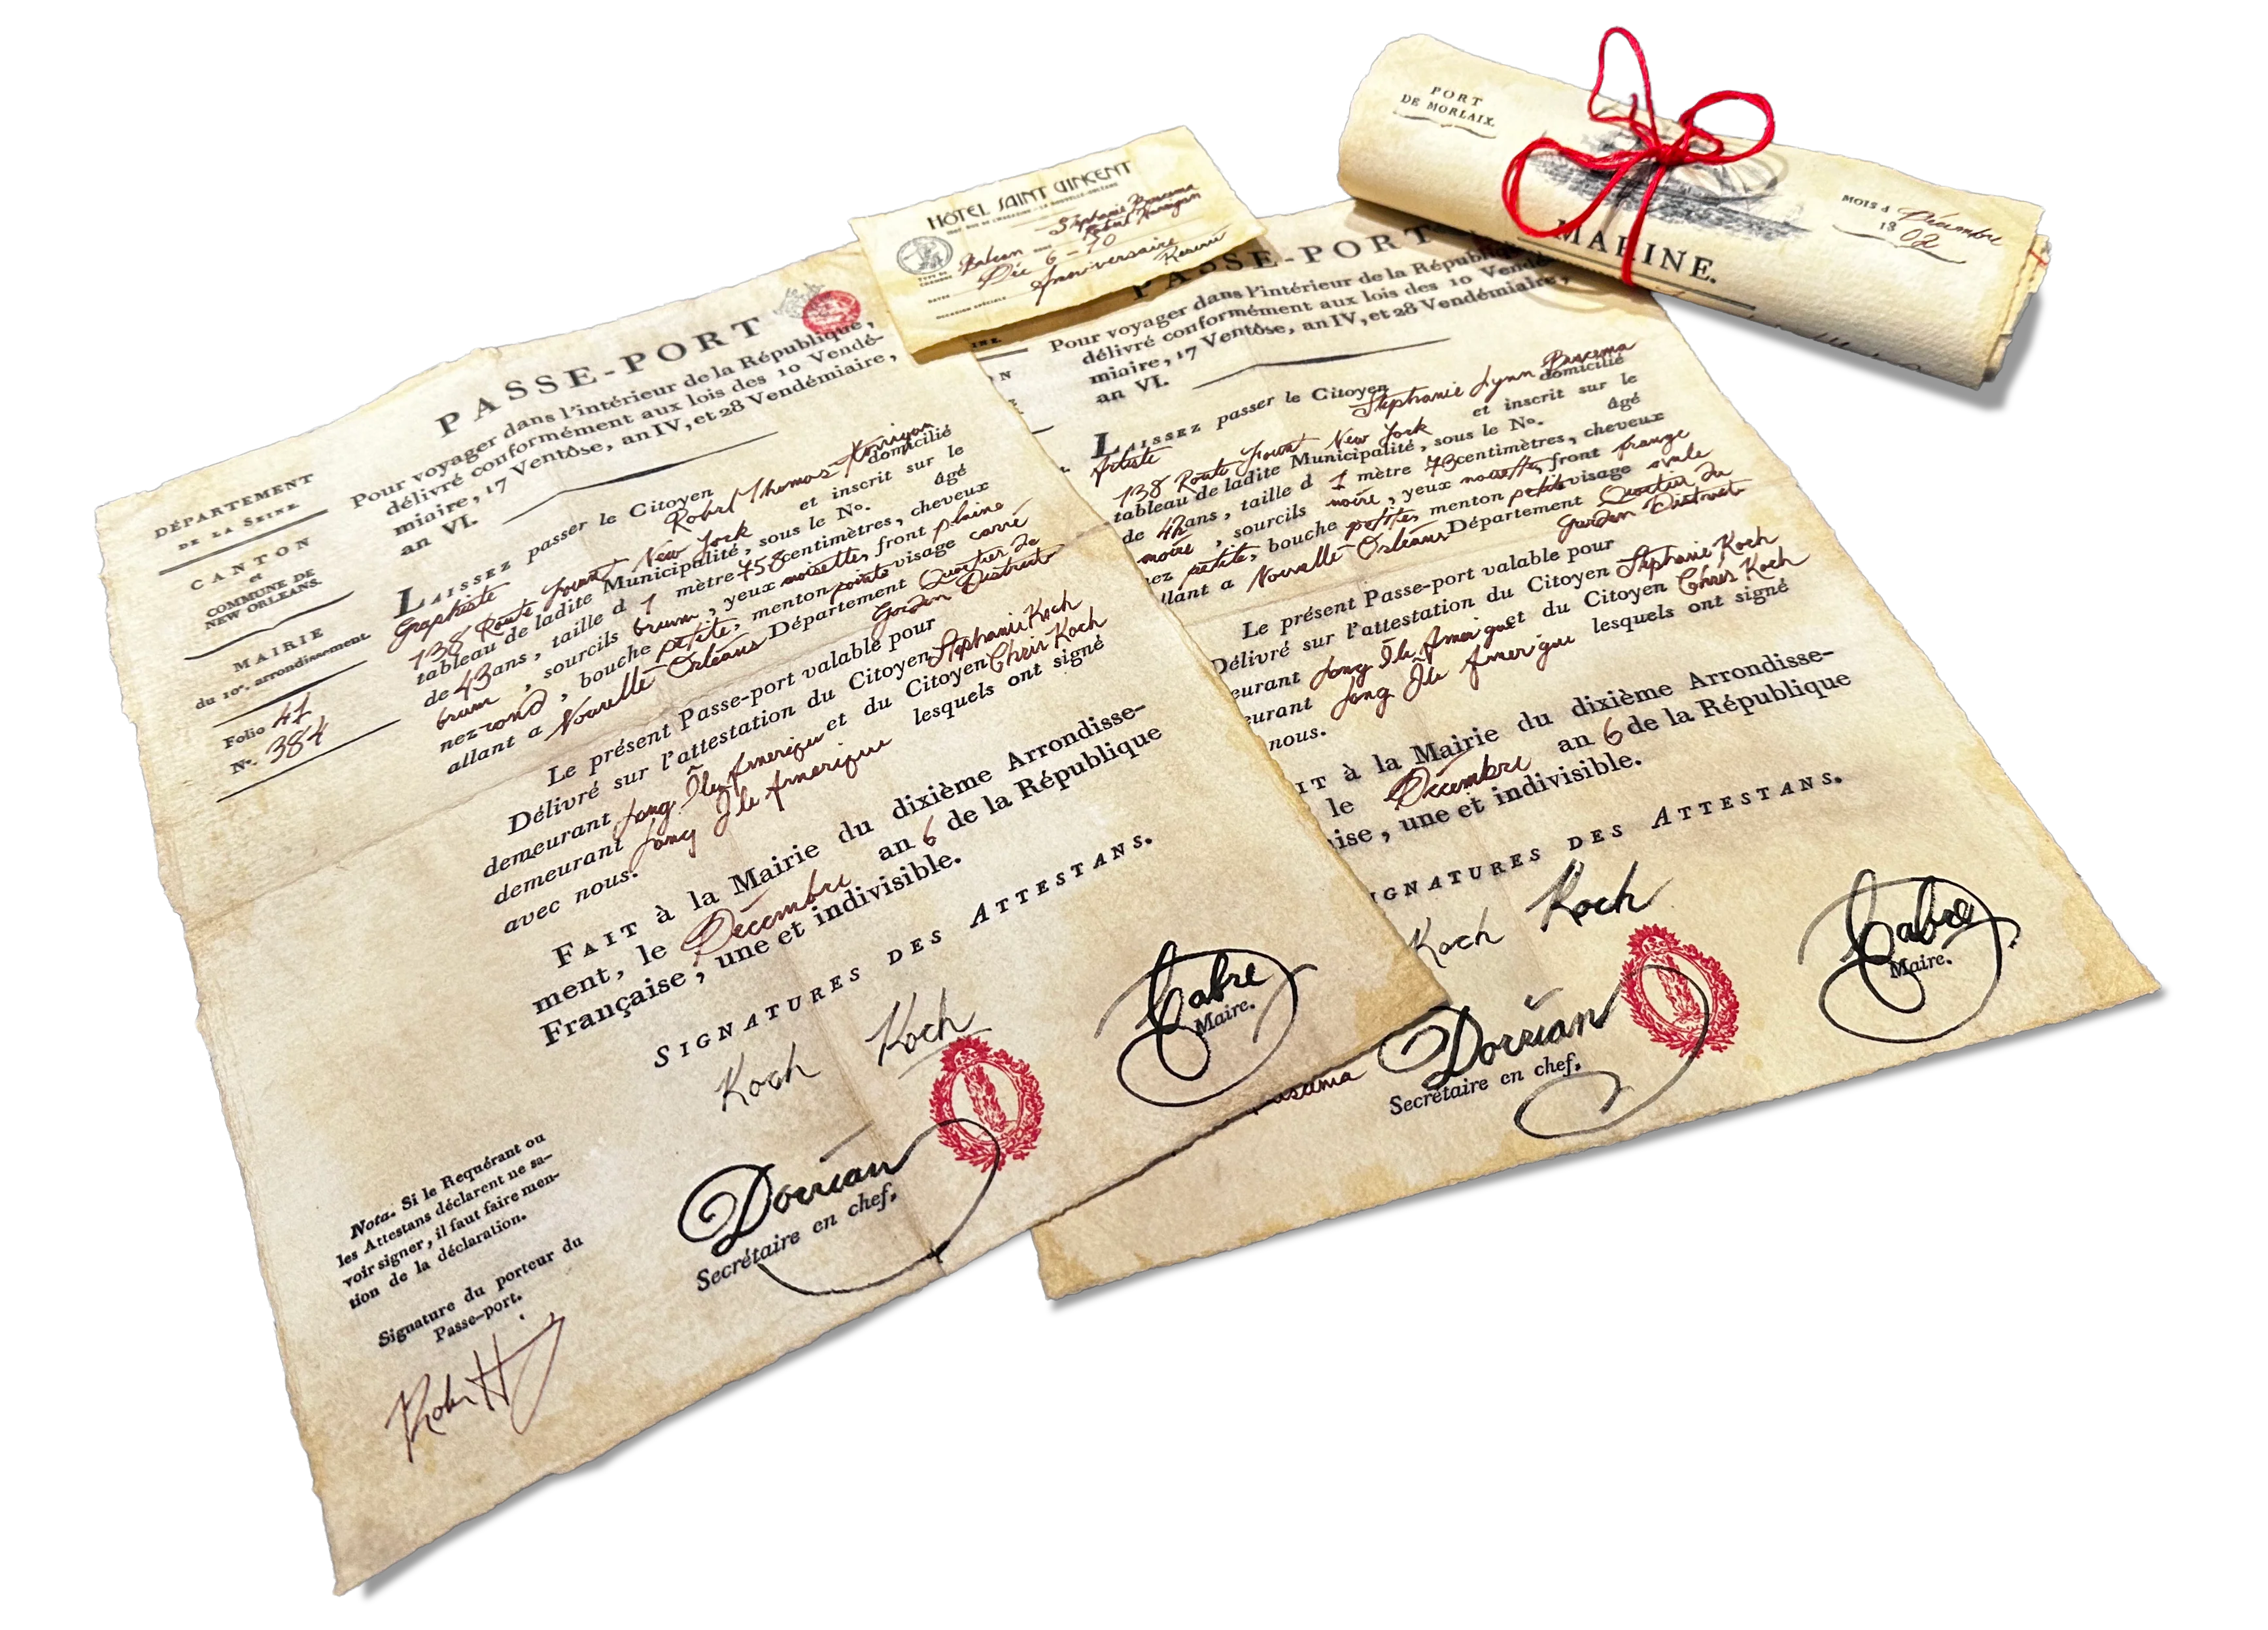 PORT
DE MORLAIX.
MARINE.
MOIS d Décembre
18 02
HÔTEL SAINT VINCENT
Stephanie Buscema
Robert Harrigan
TYPE DE
CHAMBRE
Balcon
DATES
Déc 6 - 10
OCCASION SPÉCIALE
Anniversaire
Reservé
DÉPARTEMENT
DE LA SEINE
CANTON
et
COMMUNE DE
NEW ORLEANS.
MAIRIE
du 10e. arrondissement.
Folio 41
No. 384
PASSE-PORT
Pour voyager dans l'intérieur de la République,
délivré conformément aux lois des 10 Vendé-
miaire, 17 Ventôse, an IV, et 28 Vendémiaire,
an VI.
LAISSEZ passer le Citoyen Robert Thomas Harrigan
Graphiste domicilié
138 Route Fount New York et inscrit sur le
tableau de ladite Municipalité, sous le No. âgé
de 43 ans, taille d 1 mètre 758 centimètres, cheveux
brun, sourcils brun, yeux noisette, front plaine
nez rond, bouche petite, menton pointe visage carré
allant a Nouvelle Orléans Département Quartier de
Garden District
Le présent Passe-port valable pour
Délivré sur l'attestation du Citoyen Stephanie Koch
demeurant Long Île Amerique et du Citoyen Chris Koch
demeurant Long Île Amerique lesquels ont signé
avec nous.
FAIT à la Mairie du dixième Arrondisse-
ment, le Décembre an 6 de la République
Française, une et indivisible.
SIGNATURES DES ATTESTANS.
Koch Koch
Cabre
Maire.
Dorrian
Secrétaire en chef.
Nota. Si le Requérant ou
les Attestans déclarent ne sa-
voir signer, il faut faire men-
tion de la déclaration.
Signature du porteur du
Passe-port.
PASSE-PORT
Pour voyager dans l'intérieur de la République
délivré conformément aux lois des 10 Vendé
miaire, 17 Ventôse, an IV, et 28 Vendémiaire,
an VI.
LAISSEZ passer le Citoyen Stephanie Lynn Buscema
Artiste domicilié
138 Route Fount New York et inscrit sur le
tableau de ladite Municipalité, sous le No. âgé
de 42 ans, taille d 1 mètre 73 centimètres, cheveux
noire, sourcils noire, yeux noisette, front frange
nez petite, bouche petite, menton petite visage ovale
llant a Nouvelle Orléans Département Quartier du
Garden District
Le présent Passe-port valable pour
Délivré sur l'attestation du Citoyen Stephanie Koch
eurant Long Île Amerique et du Citoyen Chris Koch
eurant Long Île Amerique lesquels ont signé
nous.
IT à la Mairie du dixième Arrondisse-
le Décembre an 6 de la République
ise, une et indivisible.
IGNATURES DES ATTESTANS.
Koch Koch
Cabre
Maire.
Dorrian
Secrétaire en chef.